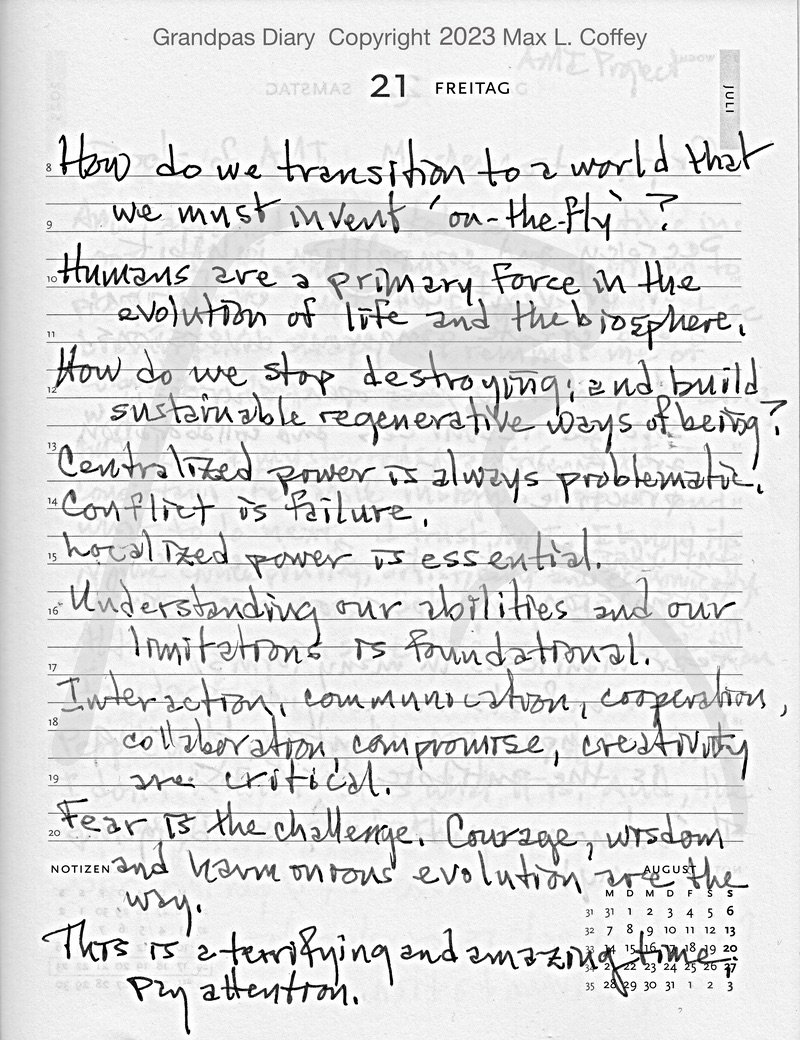 Grandpas Diary Copyright 2023 Max L. Coffey
21 FREITAG
JULI
SAMSTAG
AME Project
8 How do we transition to a world that
we must invent 'on-the-fly'?
9
10 Humans are a primary force in the
evolution of life and the biosphere.
11
How do we stop destroying; and build
12
sustainable regenerative ways of being?
13
Centralized power is always problematic.
14 Conflict is failure.
15 Localized power is essential.
16 Understanding our abilities and our
limitations is foundational.
17
Interaction, communication, cooperation,
18
collaboration, compromise, creativity
19 are critical.
Fear is the challenge. Courage, wisdom
20
NOTIZEN and harmonious evolution are the
AUGUST
way.
M D M D F S S
31 31 1 2 3 4 5 6
32 7 8 9 10 11 12 13
This is a terrifying and amazing time.
33 14 15 16 17 18 19 20
34 21 22 23 24 25 26 27
Pay attention.
35 28 29 30 31 1 2 3